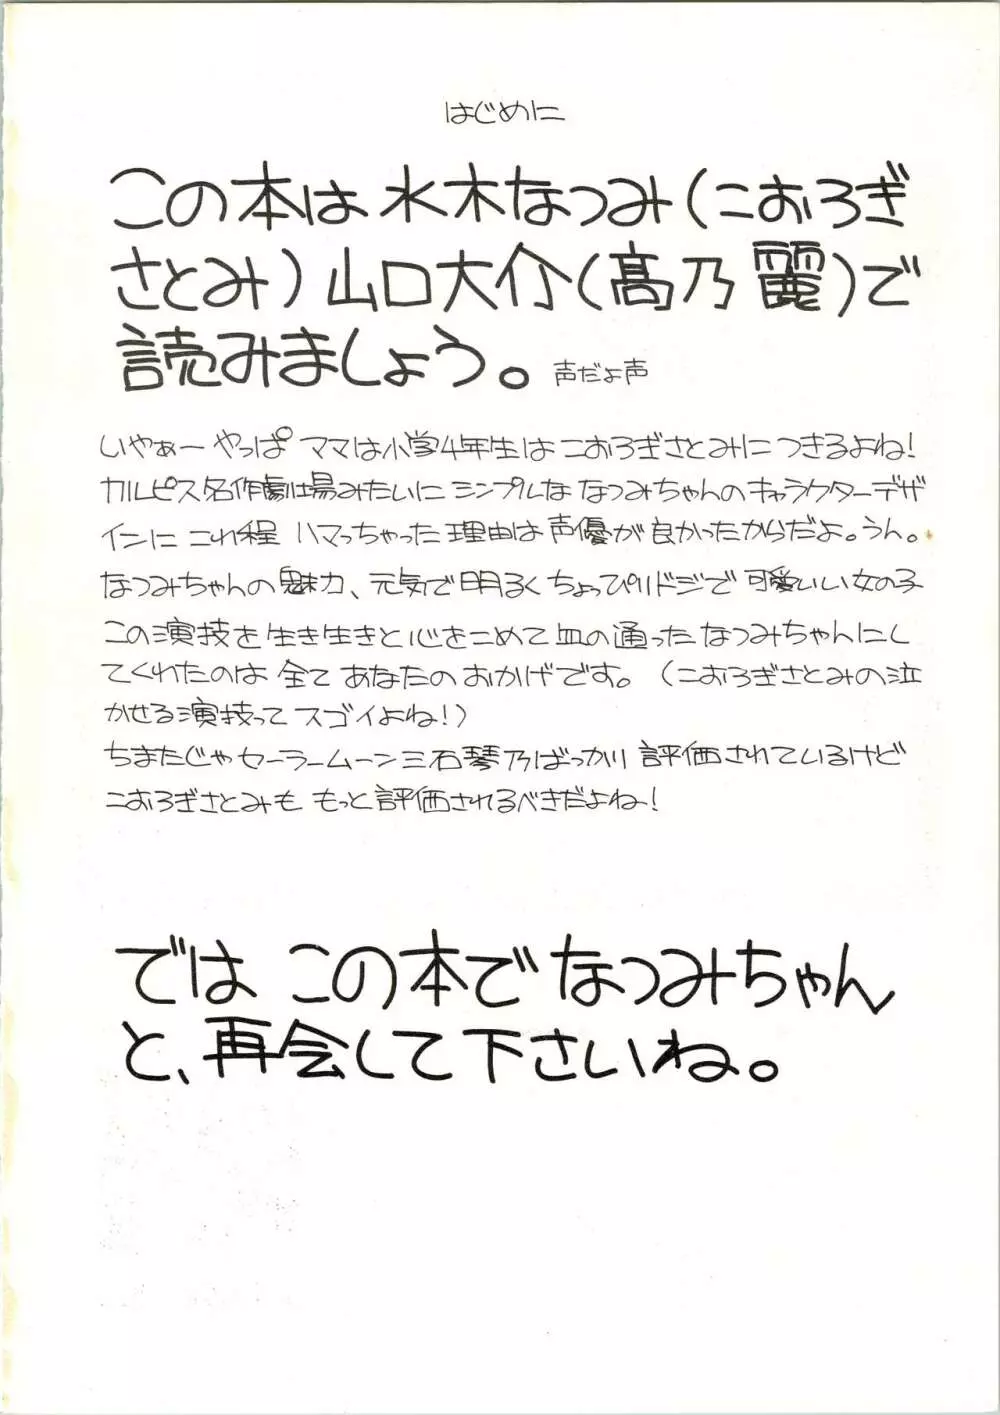 はじめに
この本は水木なつみ(こおろぎ
さとみ)山口大介(高乃麗)で
読みましょう。声だよ声
いやぁー やっぱ ママは小学4年生は こおろぎさとみにつきるよね!
カルピス名作劇場みたいに シンプルな なつみちゃんのキャラクターデザ
インに これ程 ハマっちゃった理由は 声優が良かったからだよ。うん。
なつみちゃんの魅力、元気で明るく ちょっぴりドジで 可愛いい女の子
この演技を 生き生きと 心をこめて 血の通った なつみちゃんにし
てくれたのは 全て あなたの おかげです。(こおろぎさとみの泣
かせる演技って スゴイよね!)
ちまたじゃ セーラームーン三石琴乃ばっかり 評価されているけど
こおろぎさとみも もっと評価されるべきだよね!
では この本で なつみちゃん
と、再会して下さいね。